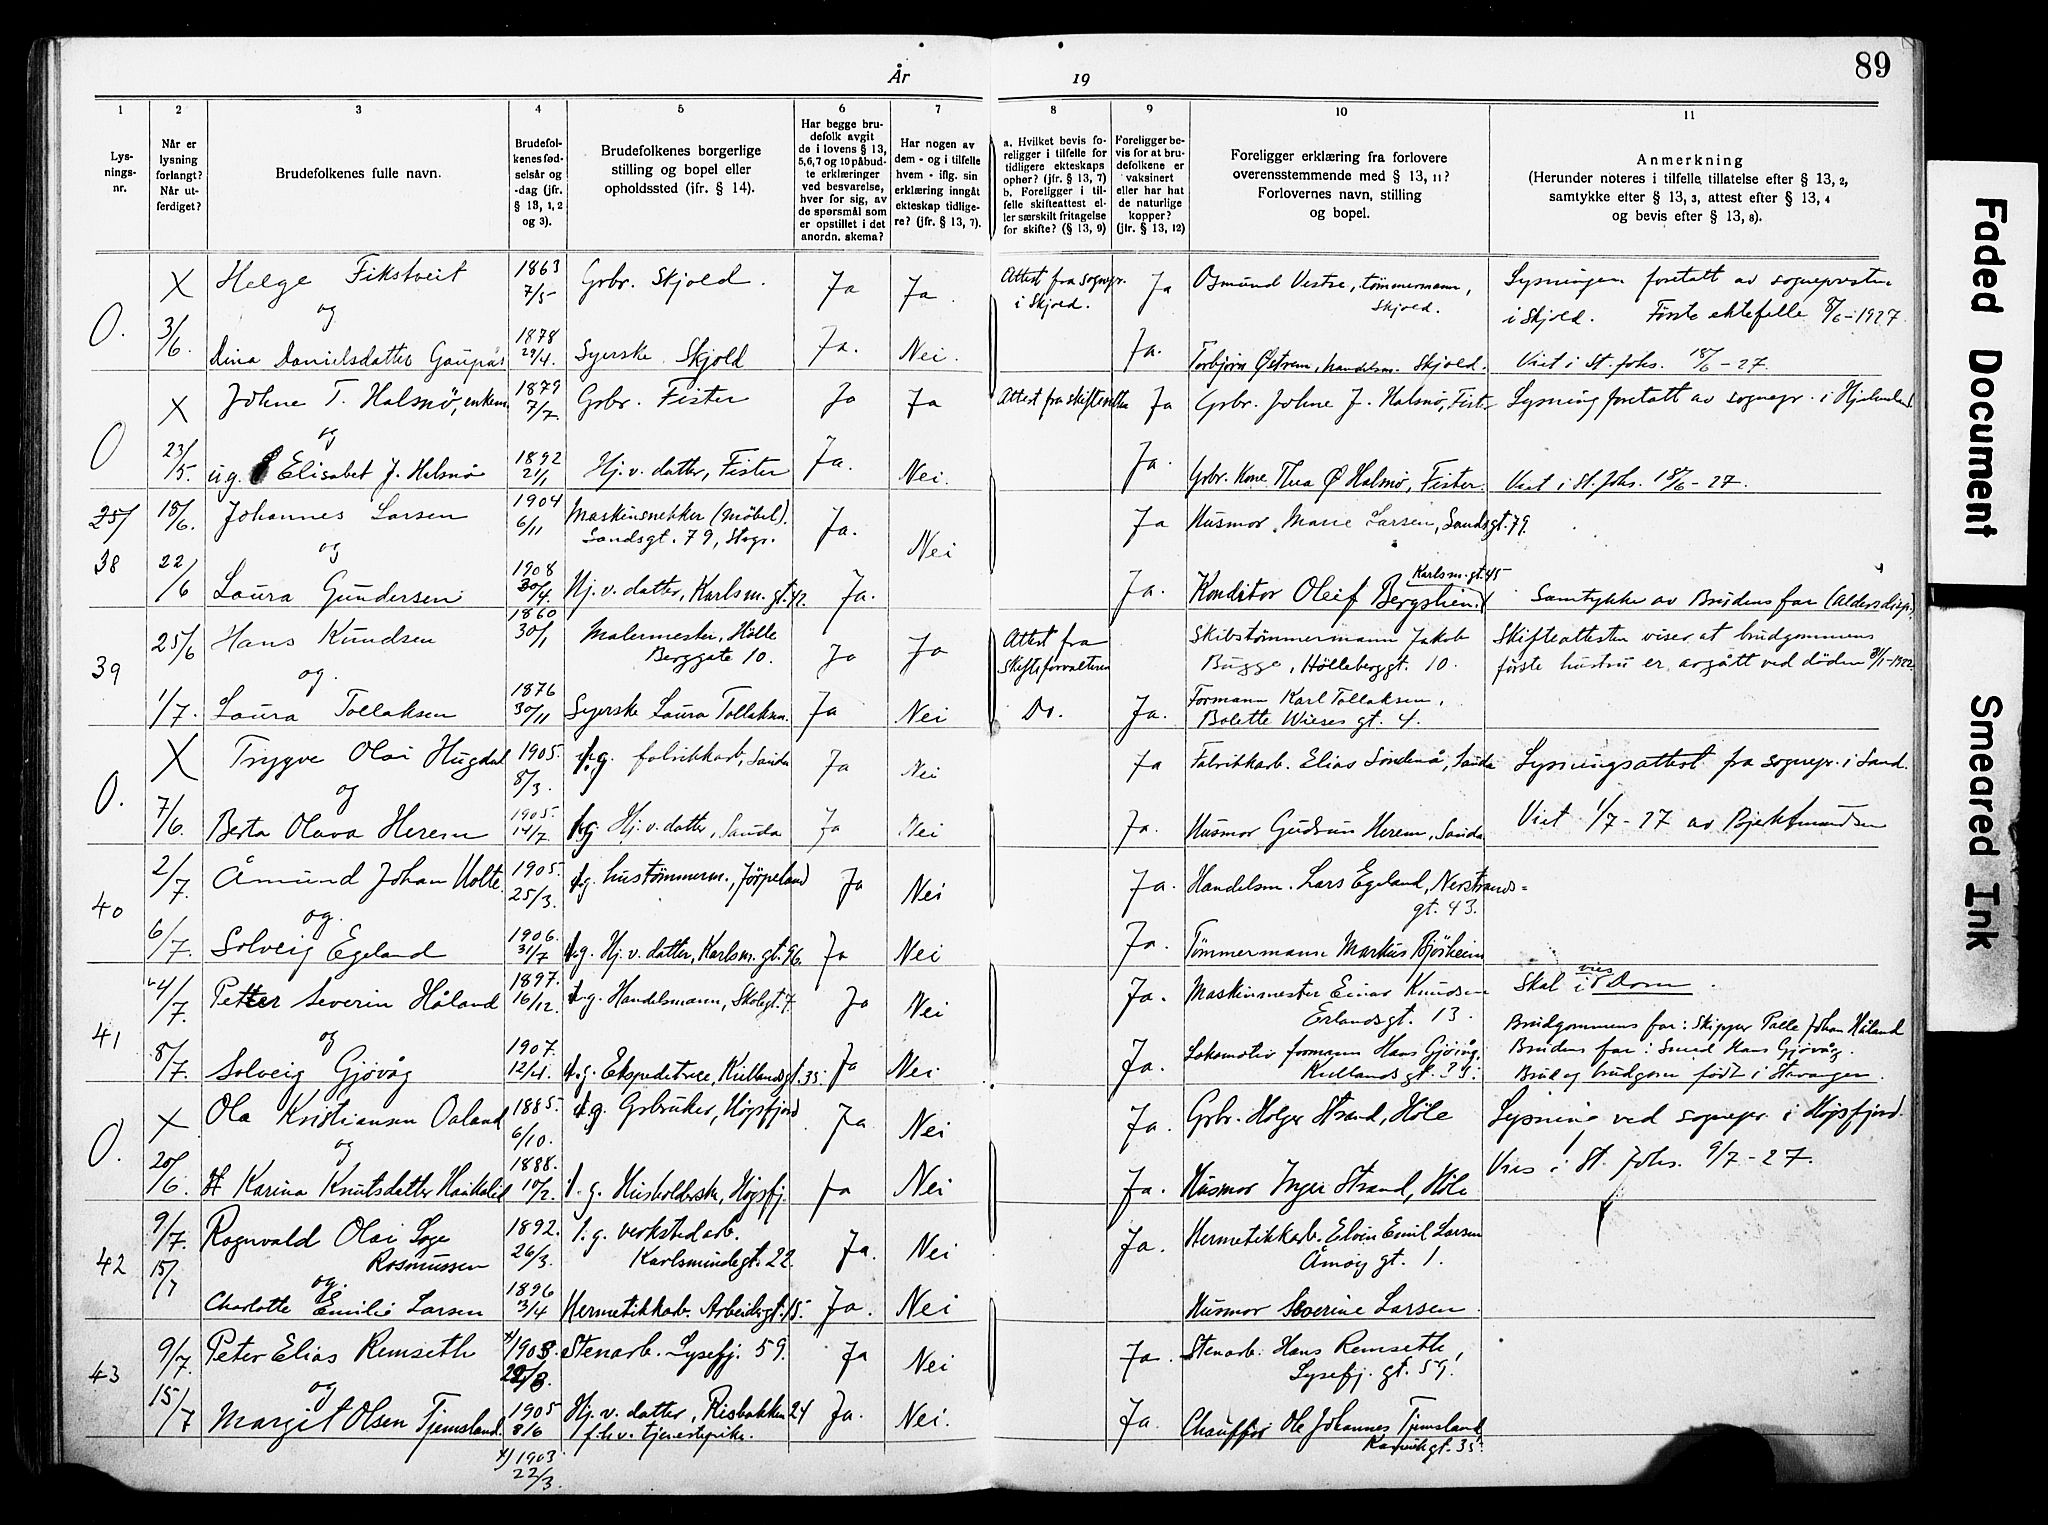 År 19
89
1 2 3 4 5 6 7 8 9 10 11
Lysningsnr.
Når er lysning forlangt? Når utferdiget?
Brudefolkenes fulle navn.
Brudefolkenes fødselsår og -dag (jfr. § 13, 1, 2 og 3).
Brudefolkenes borgerlige stilling og bopel eller opholdssted (ifr. § 14).
Har begge brudefolk avgit de i lovens § 13, 5, 6, 7 og 10 påbudte erklæringer ved besvarelse, hver for sig, av de spørsmål som er opstillet i det anordn. skema?
Har nogen av dem - og i tilfelle hvem - iflg. sin erklæring inngått ekteskap tidligere? (jfr. § 13, 7).
a. Hvilket bevis foreligger i tilfelle for tidligere ekteskaps opher? (jfr. § 13, 7) b. Foreligger i tilfelle skifteattest eller særskilt fritagelse for skifte? (§ 13, 9)
Foreligger bevis for at brudefolkene er vaksinert eller har hat de naturlige kopper? (jfr. § 13, 12)
Foreligger erklæring fra forlovere overensstemmende med § 13, 11? Forlovernes navn, stilling og bopel.
Anmerkning (Herunder noteres i tilfelle tillatelse efter § 13, 2, samtykke efter § 13, 3, attest efter § 13, 4 og bevis efter § 13, 8).
O. X Helge Fikstveit 1863 7/5 Grbr. Skjold. Ja Ja. Attest fra sognepr. i Skjold. Ja Osmund Vestre, tømmermann, Skjold. Lysningen foretatt av sogneprsten i Skjold. Første ektefelle 8/6-1927.
og
3/6 Dina Danielsdatter Gaupås 1878 29/4. Syerske Skjold Ja. Nei. Ja. Torbjørn Østrem, handelsm. Skjold. Viet i St. Johs. 18/6-27.
O X Johne T. Halsnø, enkem. 1879 7/7. Grbr. Fister Ja Ja Attest fra skifteretten Ja Grbr. Johne J. Halsnø, Fister Lysning foretatt av sognepr. i Hjelmeland
og
23/5. u.g. Elisabet J. Halsnø 1892 21/1 Hj. v. datter, Fister Ja. Nei. Ja. Grbr. Kone Thea Ø Halsnø, Fister. Viet i St. Johs. 18/6-27.
38 18/6. Johannes Larsen 1904 6/11 Maskinsnekker (møbel). Sandsgt. 79, Stvgr. Ja. Nei Ja Husmor Marie Larsen, Sandsgt. 79.
og
22/6 Laura Gundersen 1908 30/4. Hj. v. datter, Karlsm. gt. 42. Ja. Ja. Konditor Oleif Bergslien Karlsm. gt. 45 Samtykke av Brudens far (Aldersdisp.)
39 25/6 Hans Knudsen 1860 30/1 Malermester, Hølle Berggate 10. Ja Ja Attest fra Skifteforvalteren Skibstømmermann Jakob Bugge, Hølleberggt. 10. Skifteattesten viser at brudgommens første hustru er avgått ved døden 31/1-1922
og.
1/7. Laura Tollaksen 1876 30/11 Syerske Laura Tollaksen. Ja Nei Do. Ja. Formann Karl Tollaksen, Bolette Wieses gt. 4.
O. X Trygve Olai Hugdal 1905. 8/3. u.g. fabrikkarb, Sauda Ja Nei Ja Fabrikkarb. Elias Søndenå, Sauda Lysningsattest fra sognepr. i Sand.
og
7/6. Berta Olava Herem 1905. 14/7. u.g. Hj. v. datter, Sauda Ja Nei Ja. Husmor Gudrun Herem, Sauda Viet 1/7-27 av
40 2/7. Åmund Johan Holte. 1905. 25/3. u.g. hustømmerm., Jørpeland Ja Nei Ja. Handelsm. Lars Egeland, Nerstrandsgt. 43.
og.
6/7. Solveig Egeland 1906. 31/7 u.g. Hj. v. datter, Karlsm. gt. 96. Ja Nei Ja. Tømmermann Markus Bjøiheim
41 4/7. Petter Severin Håland 1897. 16/12. u.g. Handelsmann, Skolegt. 7. Ja Nei Ja. Maskinmester Einar Knudsen Erlandsgt. 13. Skal vies i Dom.
og Brudgommens far: Skipper Palle Johan Håland
8/7. Solveig Gjøvåg 1907. 12/4. u.g. Ekspeditrice, Kiellandsgt. 35. Ja Nei Ja. Lokomotivformann Hans Gjøvåg, Kiellandsgt. 35. Brudens far: Smed Hans Gjøvåg.
Brud og brudgom født i Stavanger.
O. X Ola Kristiansen Oaland 1885. 6/10. u.g. Grbruker, Høgsfjord Ja Nei Ja. Grbr. Holger Strand, Høle Lysning ved sognepr. i Høgsfjord.
og
20/6. Karina Knutsdatter Haukalid 1888. 10/2. u.g. Husholderske, Høgsfj. Ja Nei Ja. Husmor Inger Strand, Høle Vies i St. Johs. 9/7-27.
42 9/7. Rognvald Olai Soge Rosmussen 1892. 26/3. u.g. verkstedarb. Karlsmindegt. 22. Ja. Nei Ja. Hermetikkarb. Elvin Emil Larsen Åmøy gt. 1.
og.
15/7 Charlotte Emilie Larsen 1896 3/4 Hermetikkarb. Arbeidsgt. 15. Ja. Nei Husmor Severine Larsen.
43 9/7. Peter Elias Remseth x) 1903. Stenarb. Lysefj. 59. Ja Nei Ja. Stenarb. Hans Remseth, Lysefj. gt. 59.
og
15/7 Margit Olsen Tjemsland. 1905 8/6 Hj. v. datter, Risbakken 24 f.h.v. tjenestepike. Ja. Nei. Ja. Chauffør Ole Johannes Tjemsland, Karvikgt. 35.
x) 1903 22/3.
Faded Document
Smeared Ink